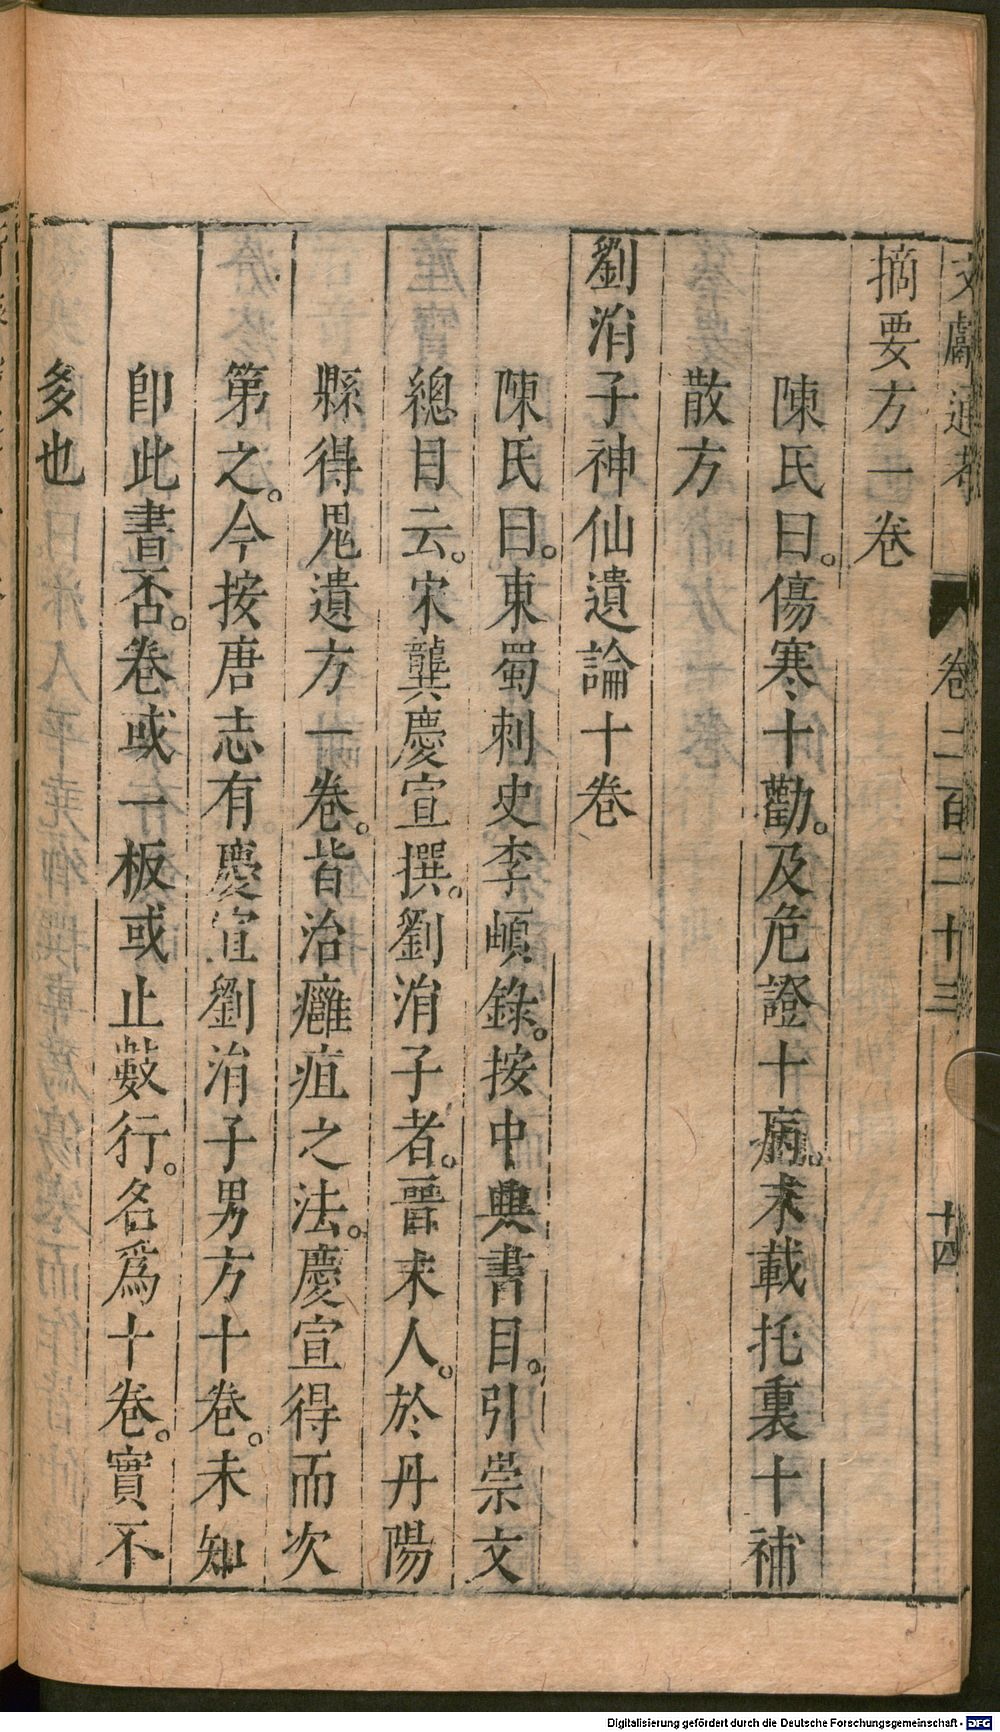 文獻通考 卷二百二十三 十四
摘要方一卷
陳氏曰。傷寒十勸。及危證十病。末載托裏十補
散方
劉涓子神仙遺論十卷
陳氏曰。東蜀刺史李頔錄。按中興書目。引崇文
總目云。宋龔慶宣撰。劉涓子者。晉末人。於丹陽
縣得鬼遺方一卷。皆治癰疽之法。慶宣得而次
第之。今按唐志有慶宣劉涓子男方十卷。未知
卽此書否。卷或一板或止數行。名爲十卷。實不
多也
Digitalisierung gefördert durch die Deutsche Forschungsgemeinschaft - DFG